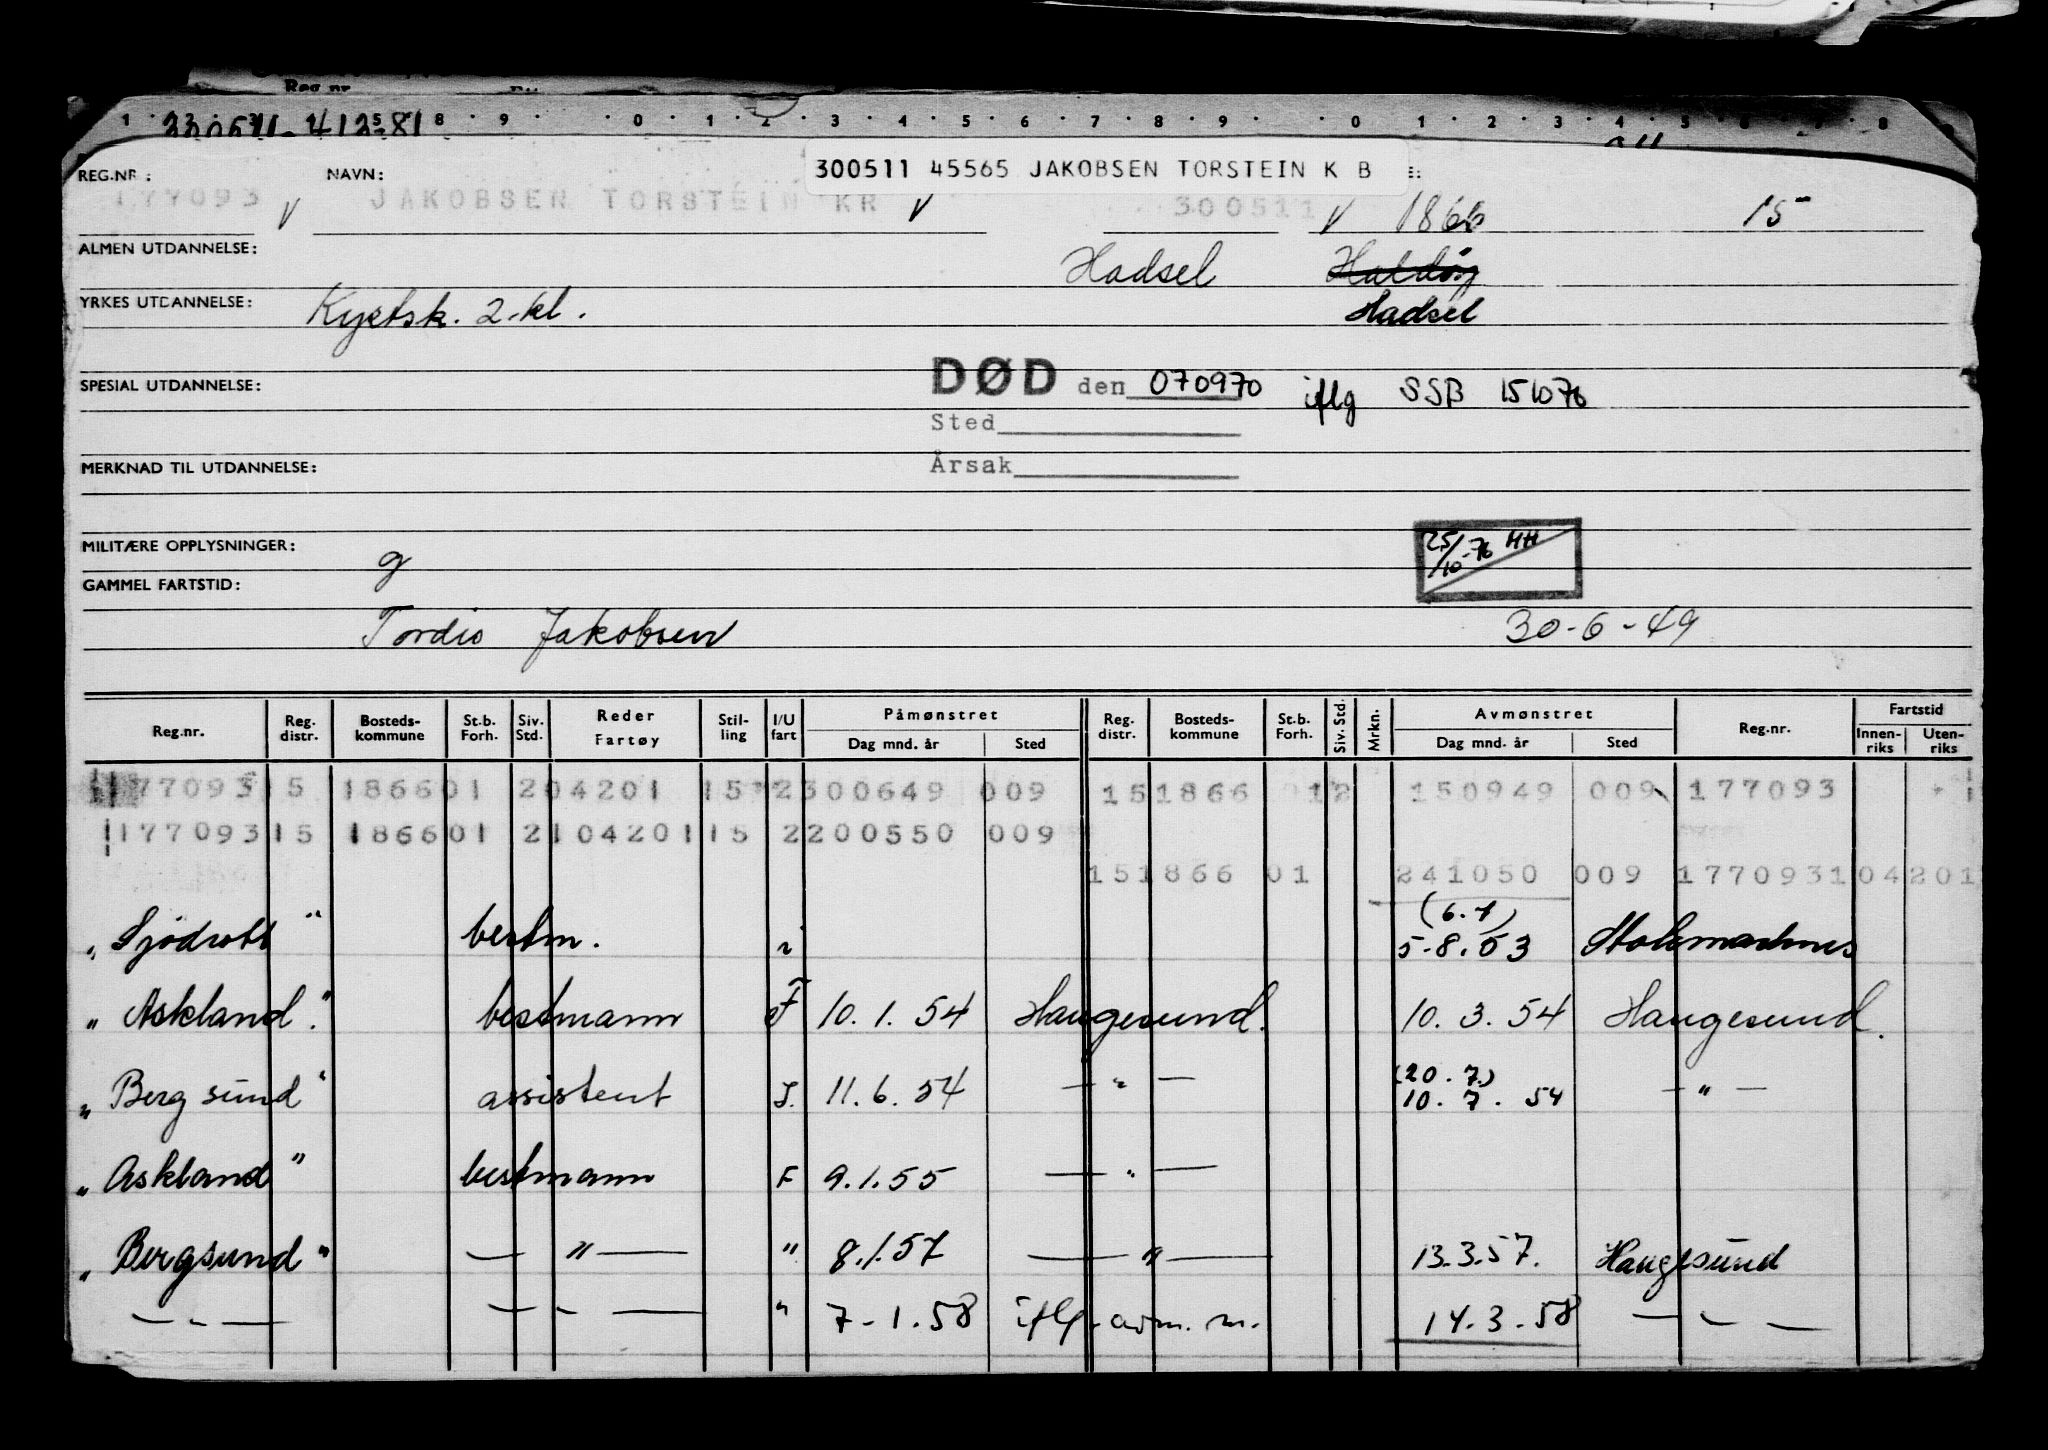 Reg nr
300511 - 41281
1 8 9 0 1 2 3 4 5 6 7 8 9 0 1 2 3 4 5 6 7 8
REG.NR.: NAVN: 300511 45565 JAKOBSEN TORSTEIN K B E:
177093 V JAKOBSEN TORSTEIN KR V 300511 V 1866 15
ALMEN UTDANNELSE: Hadsel
YRKES UTDANNELSE: Kystsk. 2.kl. Hadsel
SPESIAL UTDANNELSE: DØD den 070970 iflg SSB 151076
Sted
MERKNAD TIL UTDANNELSE: Årsak
MILITÆRE OPPLYSNINGER: g 25/10-76 HH
GAMMEL FARTSTID:
Tordis Jakobsen 30-6-49
Reg.nr. Reg. distr. Bosteds-kommune St.b. Forh. Siv. Std. Reder Fartøy Stil-ling I/U fart Påmønstret Dag mnd. år Sted Reg. distr. Bosteds-kommune St.b. Forh. Siv. Std. Mrkn. Avmønstret Dag mnd. år Sted Reg.nr. Fartstid Innen-riks Uten-riks
177093 15 1866 01 2 04201 15 2 300649 009 15 1866 01 2 150949 009 177093
177093 15 1866 01 2 104201 15 2 200550 009
15 1866 01 241050 009 177093 104201
(6.8)
"Sjödrott" bestm. i 5-8.53 Stokmarknes
"Askland." bestmann F 10.1.54 Haugesund. 10.3.54 Haugesund.
(20.7.)
"Bergsund" assistent S. 11.6.54 — " — 10.7.54 — " —
"Askland" bestmann F 9.1.55 — " —
"Bergsund" — " — " 8.1.57 — " — 13.3.57. Haugesund
— " — — " — " 7-1.58 iflg. avm. m. 14.3.58 — " —